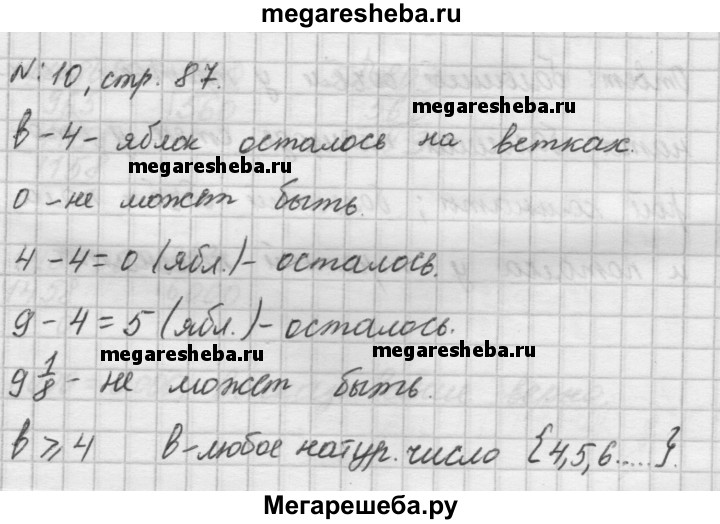 megaresheba.ru
N: 10, стр. 87.
megaresheba.ru
в - 4 - яблок осталось на ветках.
megaresheba.ru
0 - не может быть.
4 - 4 = 0 (ябл.) - осталось.
9 - 4 = 5 (ябл.) - осталось.
megaresheba.ru megaresheba.ru
9 1/8 - не может быть.
в ⩾ 4 в - любое натур. число {4,5,6.....}.
Мегарешеба.ру